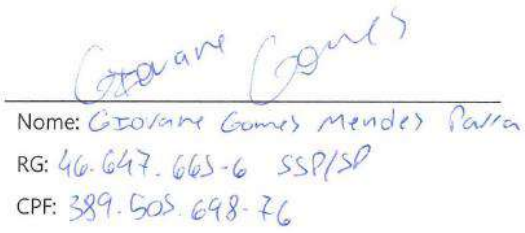 Giovane Gomes
Nome: Giovane Gomes Mendes Parra
RG: 46.647.665-6 SSP/SP
CPF: 389.505.698-76